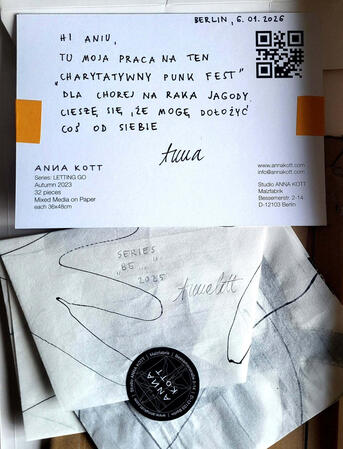 BERLIN, 6.01.2026
HI ANIU,
TU MOJA PRACA NA TEN
„CHARYTATYWNY PUNK FEST"
DLA CHOREJ NA RAKA JAGODY.
CIESZĘ SIĘ, ŻE MOGĘ DOŁOŻYĆ
COŚ OD SIEBIE
Anna
ANNA KOTT
Series: LETTING GO
Autumn 2023
32 pieces
Mixed Media on Paper
each 36x48cm
www.annakott.com
info@annakott.com
Studio ANNA KOTT
Malzfabrik
Bessemerstr. 2-14
D-12103 Berlin
SERIES
"BE..."
2025
Anna Kott
ANNA
KOTT
Studio ANNA KOTT | Malzfabrik | Bessemerstr. 2-14 | D-12103 Berlin | www.annakott.com